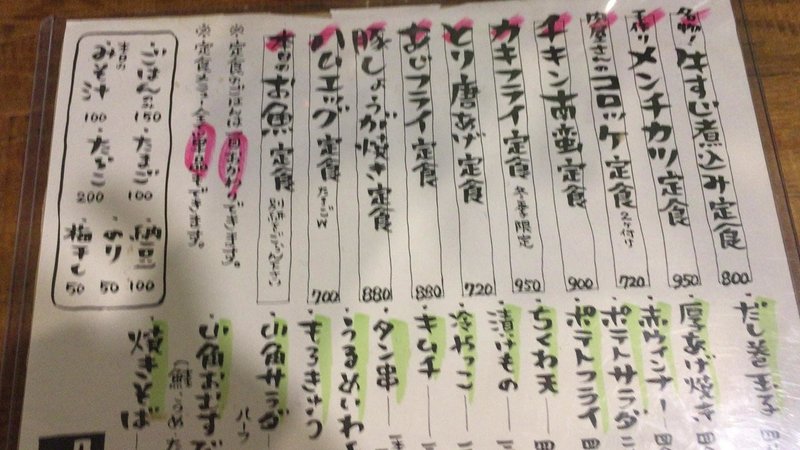 名物!牛すじ煮込み定食 800
手作りメンチカツ定食 950
肉屋さんのコロッケ定食 2ヶ付け 720
チキン南蛮定食 900
カキフライ定食 冬季限定 950
とり唐あげ定食 720
あじフライ定食 880
豚しょうが焼き定食 880
ハムエッグ定食 たまごW 700
本日のお魚定食 別紙をごらん下さい
※定食のごはんは
できます。
※定食メニュー全て単品でできます。
ごはんのみ 150
たまご 100
納豆 100
本日のみそ汁 100
たらこ 200
のり 50
梅干し 50
だし巻玉子
厚あげ焼き 四
赤ウィンナー 四
ポテトサラダ 二
ポテトフライ 四
ちくわ天 四
漬けもの 二
冷やっこ 二
キムチ 二
タン串
うるめいわ
もろきゅう
山角サラダ ハーフ
山角おむすび
焼きそば